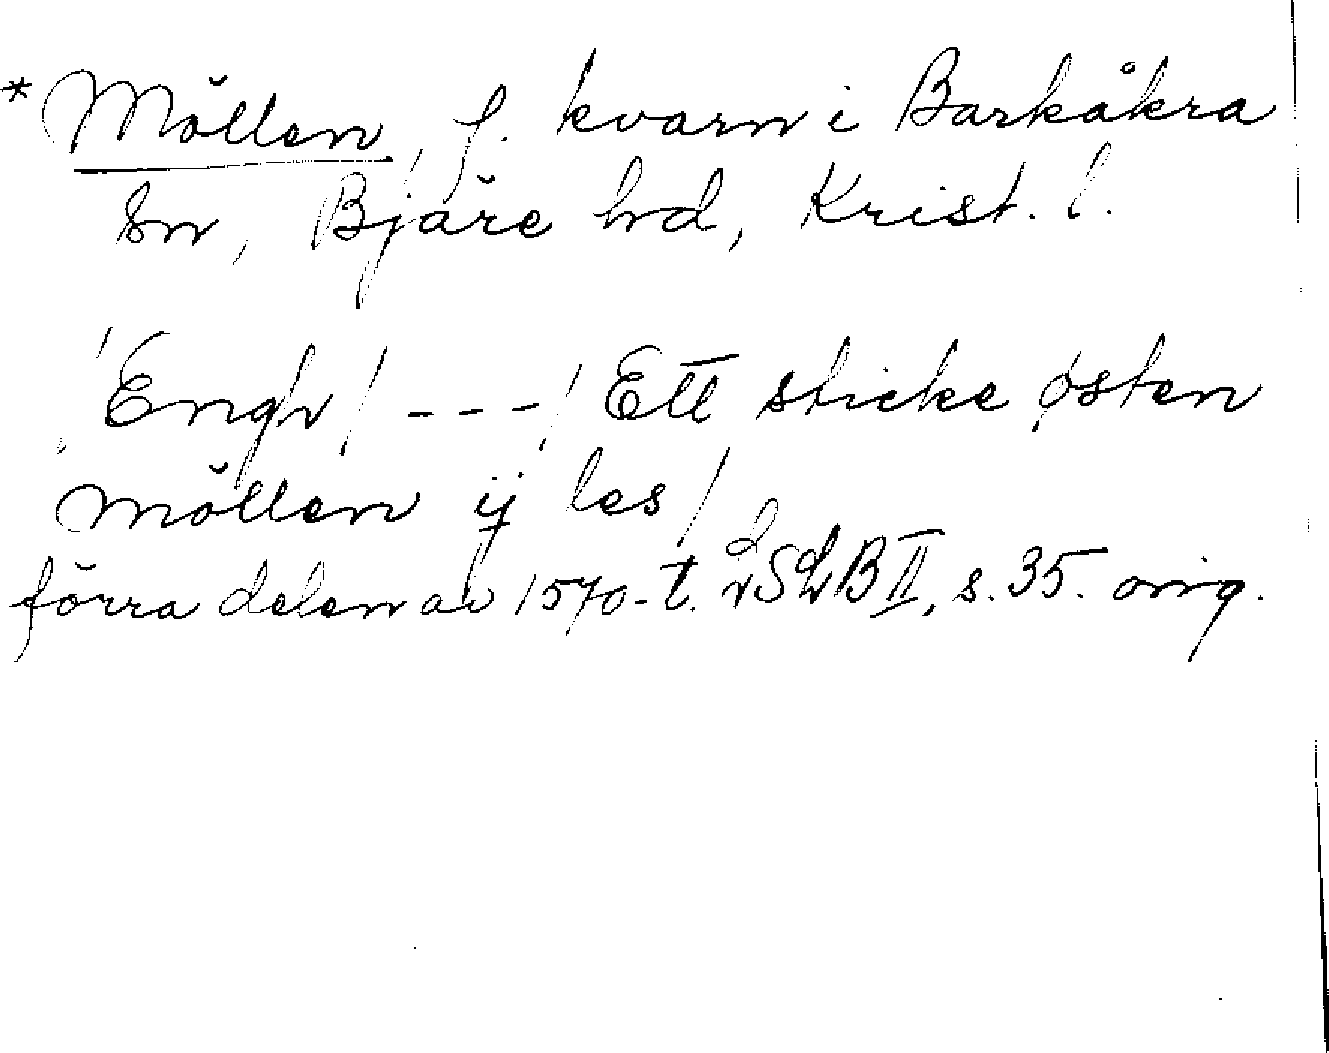 *Möllen, f. kvarn i Barkåkra
sn, Bjäre hd, Krist. l.
Engh / - - - / Ett sticke østen
möllen ij les /
förra delen av 1570-t. LSB II, s. 35. orig.